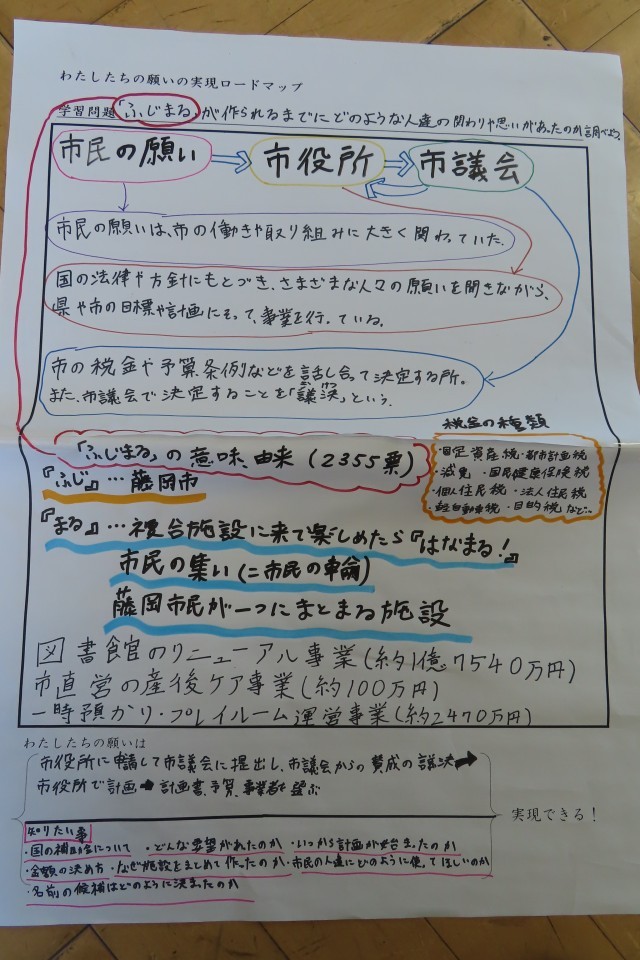 わたしたちの願いの実現ロードマップ
学習問題「ふじまる」が作られるまでにどのような人達の関わりや思いがあったのか調べよう。
市民の願い
市役所
市議会
市民の願いは、市の働きや取り組みに大きく関わっていた。
国の法律や方針にもとづき、さまざまな人々の願いを聞きながら、
県や市の目標や計画にそって、事業を行っている。
市の税金や予算、条例などを話し合って決定する所。
また、市議会で決定することを「議決」という。
ぎけつ
税金の種類
・固定資産税・都市計画税
・減免・国民健康保険税
・個人住民税・法人住民税
・軽自動車税・目的税など…
「ふじまる」の意味、由来(2355票)
『ふじ』…藤岡市
『まる』…複合施設に来て楽しめたら『はなまる!』
市民の集い(=市民の輪)
藤岡市民が一つにまとまる施設
図書館のリニューアル事業(約1億7540万円)
市直営の産後ケア事業(約100万円)
一時預かり・プレイルーム運営事業(約2470万円)
わたしたちの願いは
市役所に申請して市議会に提出し、市議会からの賛成の議決➡
市役所で計画➡計画書、予算、事業者を選ぶ
実現できる!
知りたい事
・国の補助金について ・どんな要望があれたのか ・いつから計画が始まったのか
・金額の決め方 ・なぜ施設をまとめて作ったのか ・市民の人達にどのように使ってほしいのか
・名前の候補はどのように決まったのか